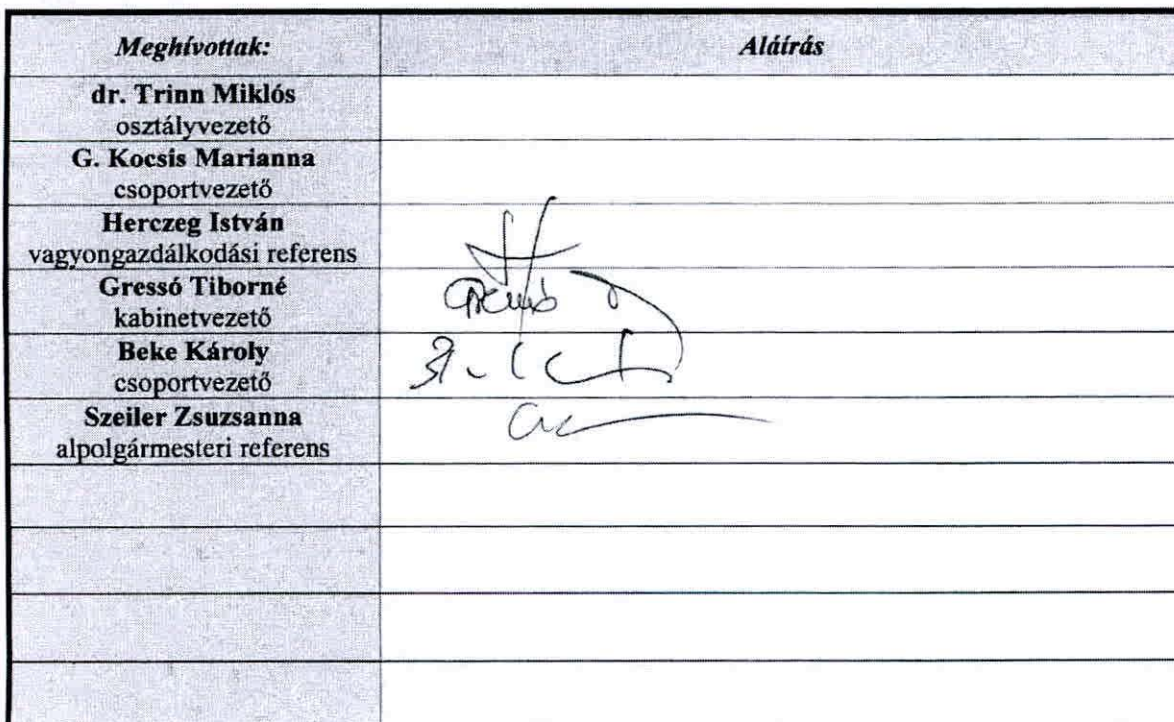 Meghívottak: Aláírás
dr. Trinn Miklós
osztályvezető
G. Kocsis Marianna
csoportvezető
Herczeg István
vagyongazdálkodási referens
Gressó Tiborné
kabinetvezető
Beke Károly
csoportvezető
Szeiler Zsuzsanna
alpolgármesteri referens